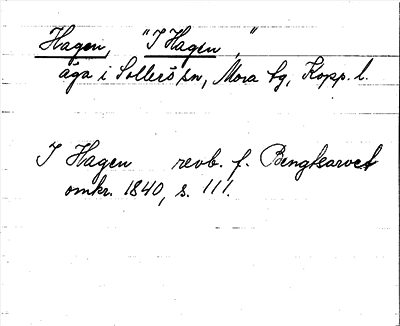 Hagen, "I Hagen,"
äga i Sollerö sn, Mora tg, Kopp. l.
I Hagen revb. f. Bengtsarvet
omkr. 1840, s. 111.